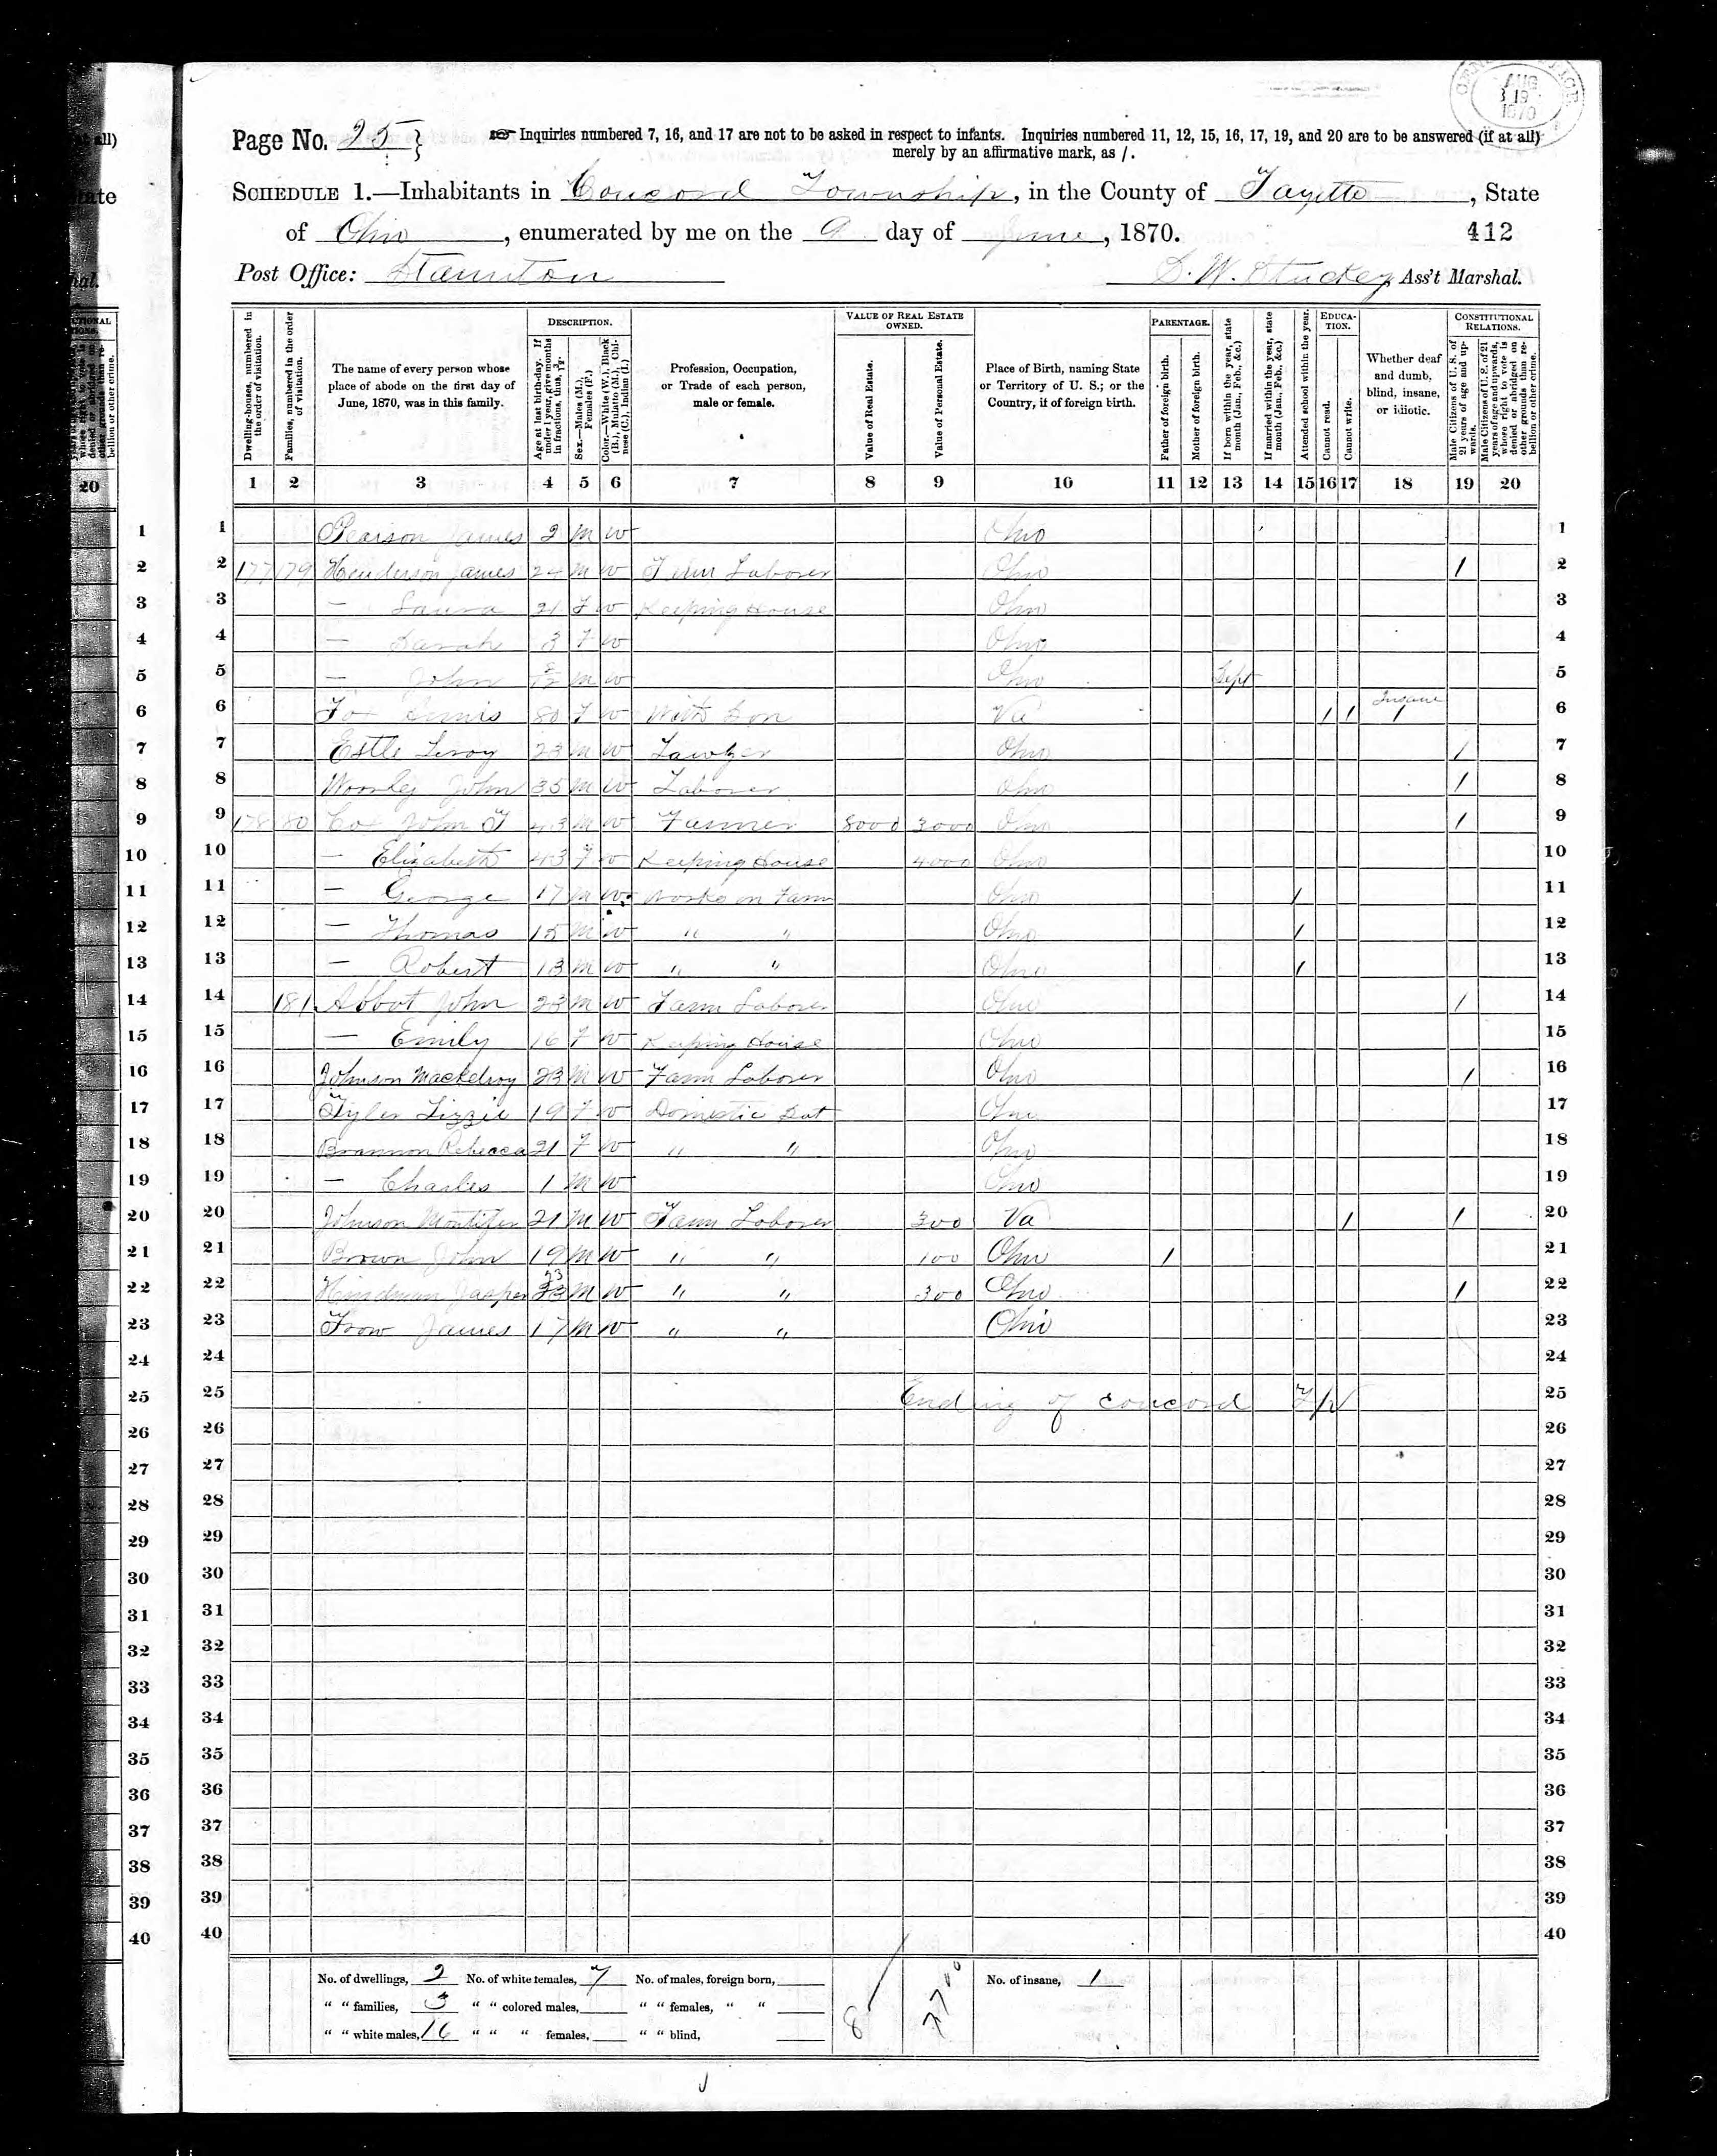 CENSUS OFFICE AUG 19 1870
Page No. 25 } Inquiries numbered 7, 16, and 17 are not to be asked in respect to infants. Inquiries numbered 11, 12, 15, 16, 17, 19, and 20 are to be answered (if at all)
merely by an affirmative mark, as /.
SCHEDULE 1.—Inhabitants in Concord Township, in the County of Fayette, State
of Ohio, enumerated by me on the 9 day of June, 1870. 412
Post Office: Staunton S. W. Stuckey, Ass't Marshal.
Dwelling-houses, numbered in the order of visitation.
Families, numbered in the order of visitation.
The name of every person whose place of abode on the first day of June, 1870, was in this family.
DESCRIPTION.
Age at last birth-day. If under 1 year, give months in fractions, thus, 3/12.
Sex.—Males (M.), Females (F.)
Color.—White (W.), Black (B.), Mulatto (M.), Chinese (C.), Indian (I.)
Profession, Occupation, or Trade of each person, male or female.
VALUE OF REAL ESTATE OWNED.
Value of Real Estate.
Value of Personal Estate.
Place of Birth, naming State or Territory of U. S.; or the Country, if of foreign birth.
PARENTAGE.
Father of foreign birth.
Mother of foreign birth.
If born within the year, state month (Jan., Feb., &c.)
If married within the year, state month (Jan., Feb., &c.)
Attended school within the year.
EDUCATION.
Cannot read.
Cannot write.
Whether deaf and dumb, blind, insane, or idiotic.
CONSTITUTIONAL RELATIONS.
Male Citizens of U. S. of 21 years of age and upwards.
Male Citizens of U. S. of 21 years of age and upwards, whose right to vote is denied or abridged on other grounds than rebellion or other crime.
1 2 3 4 5 6 7 8 9 10 11 12 13 14 15 16 17 18 19 20
1 Pearson James 2 M W Ohio 1
2 177 179 Henderson James 24 M W Farm Laborer Ohio / 2
3 — Laura 21 F W Keeping House Ohio 3
4 — Sarah 3 F W Ohio 4
5 — John 8/12 M W Ohio Sept 5
6 80 F W With Son Va / / Insane / 6
7 Estle Leroy 23 M W Lawyer Ohio / 7
8 John 35 M W Laborer Ohio / 8
9 178 180 Cox John T 43 M W Farmer 8000 3000 Ohio / 9
10 — Elizabeth 43 F W Keeping House 4000 Ohio 10
11 — George 17 M W Works on Farm Ohio / 11
12 — Thomas 15 M W " " Ohio / 12
13 — Robert 13 M W " " Ohio / 13
14 181 Abbot John 23 M W Farm Laborer Ohio / 14
15 — Emily 16 F W Keeping House Ohio 15
16 Johnson Mackelroy 23 M W Farm Laborer Ohio / 16
17 Tyler Lizzie 19 F W Domestic Ohio 17
18 Brannon Rebecca 21 F W " " Ohio 18
19 — Charles 1 M W Ohio 19
20 Johnson 21 M W Farm Laborer 300 Va / / 20
21 Brown John 19 M W " " 100 Ohio / 21
22 Hindman Jasper 23 M W " " 300 Ohio / 22
23 Frow James 17 M W " " Ohio 23
24 24
25 Ending of Concord Tp 25
26 26
27 27
28 28
29 29
30 30
31 31
32 32
33 33
34 34
35 35
36 36
37 37
38 38
39 39
40 40
No. of dwellings, 2 No. of white females, 7 No. of males, foreign born, No. of insane, 1
" " families, 3 " " colored males, " " females, " "
" " white males, 16 " " " females, " " blind,